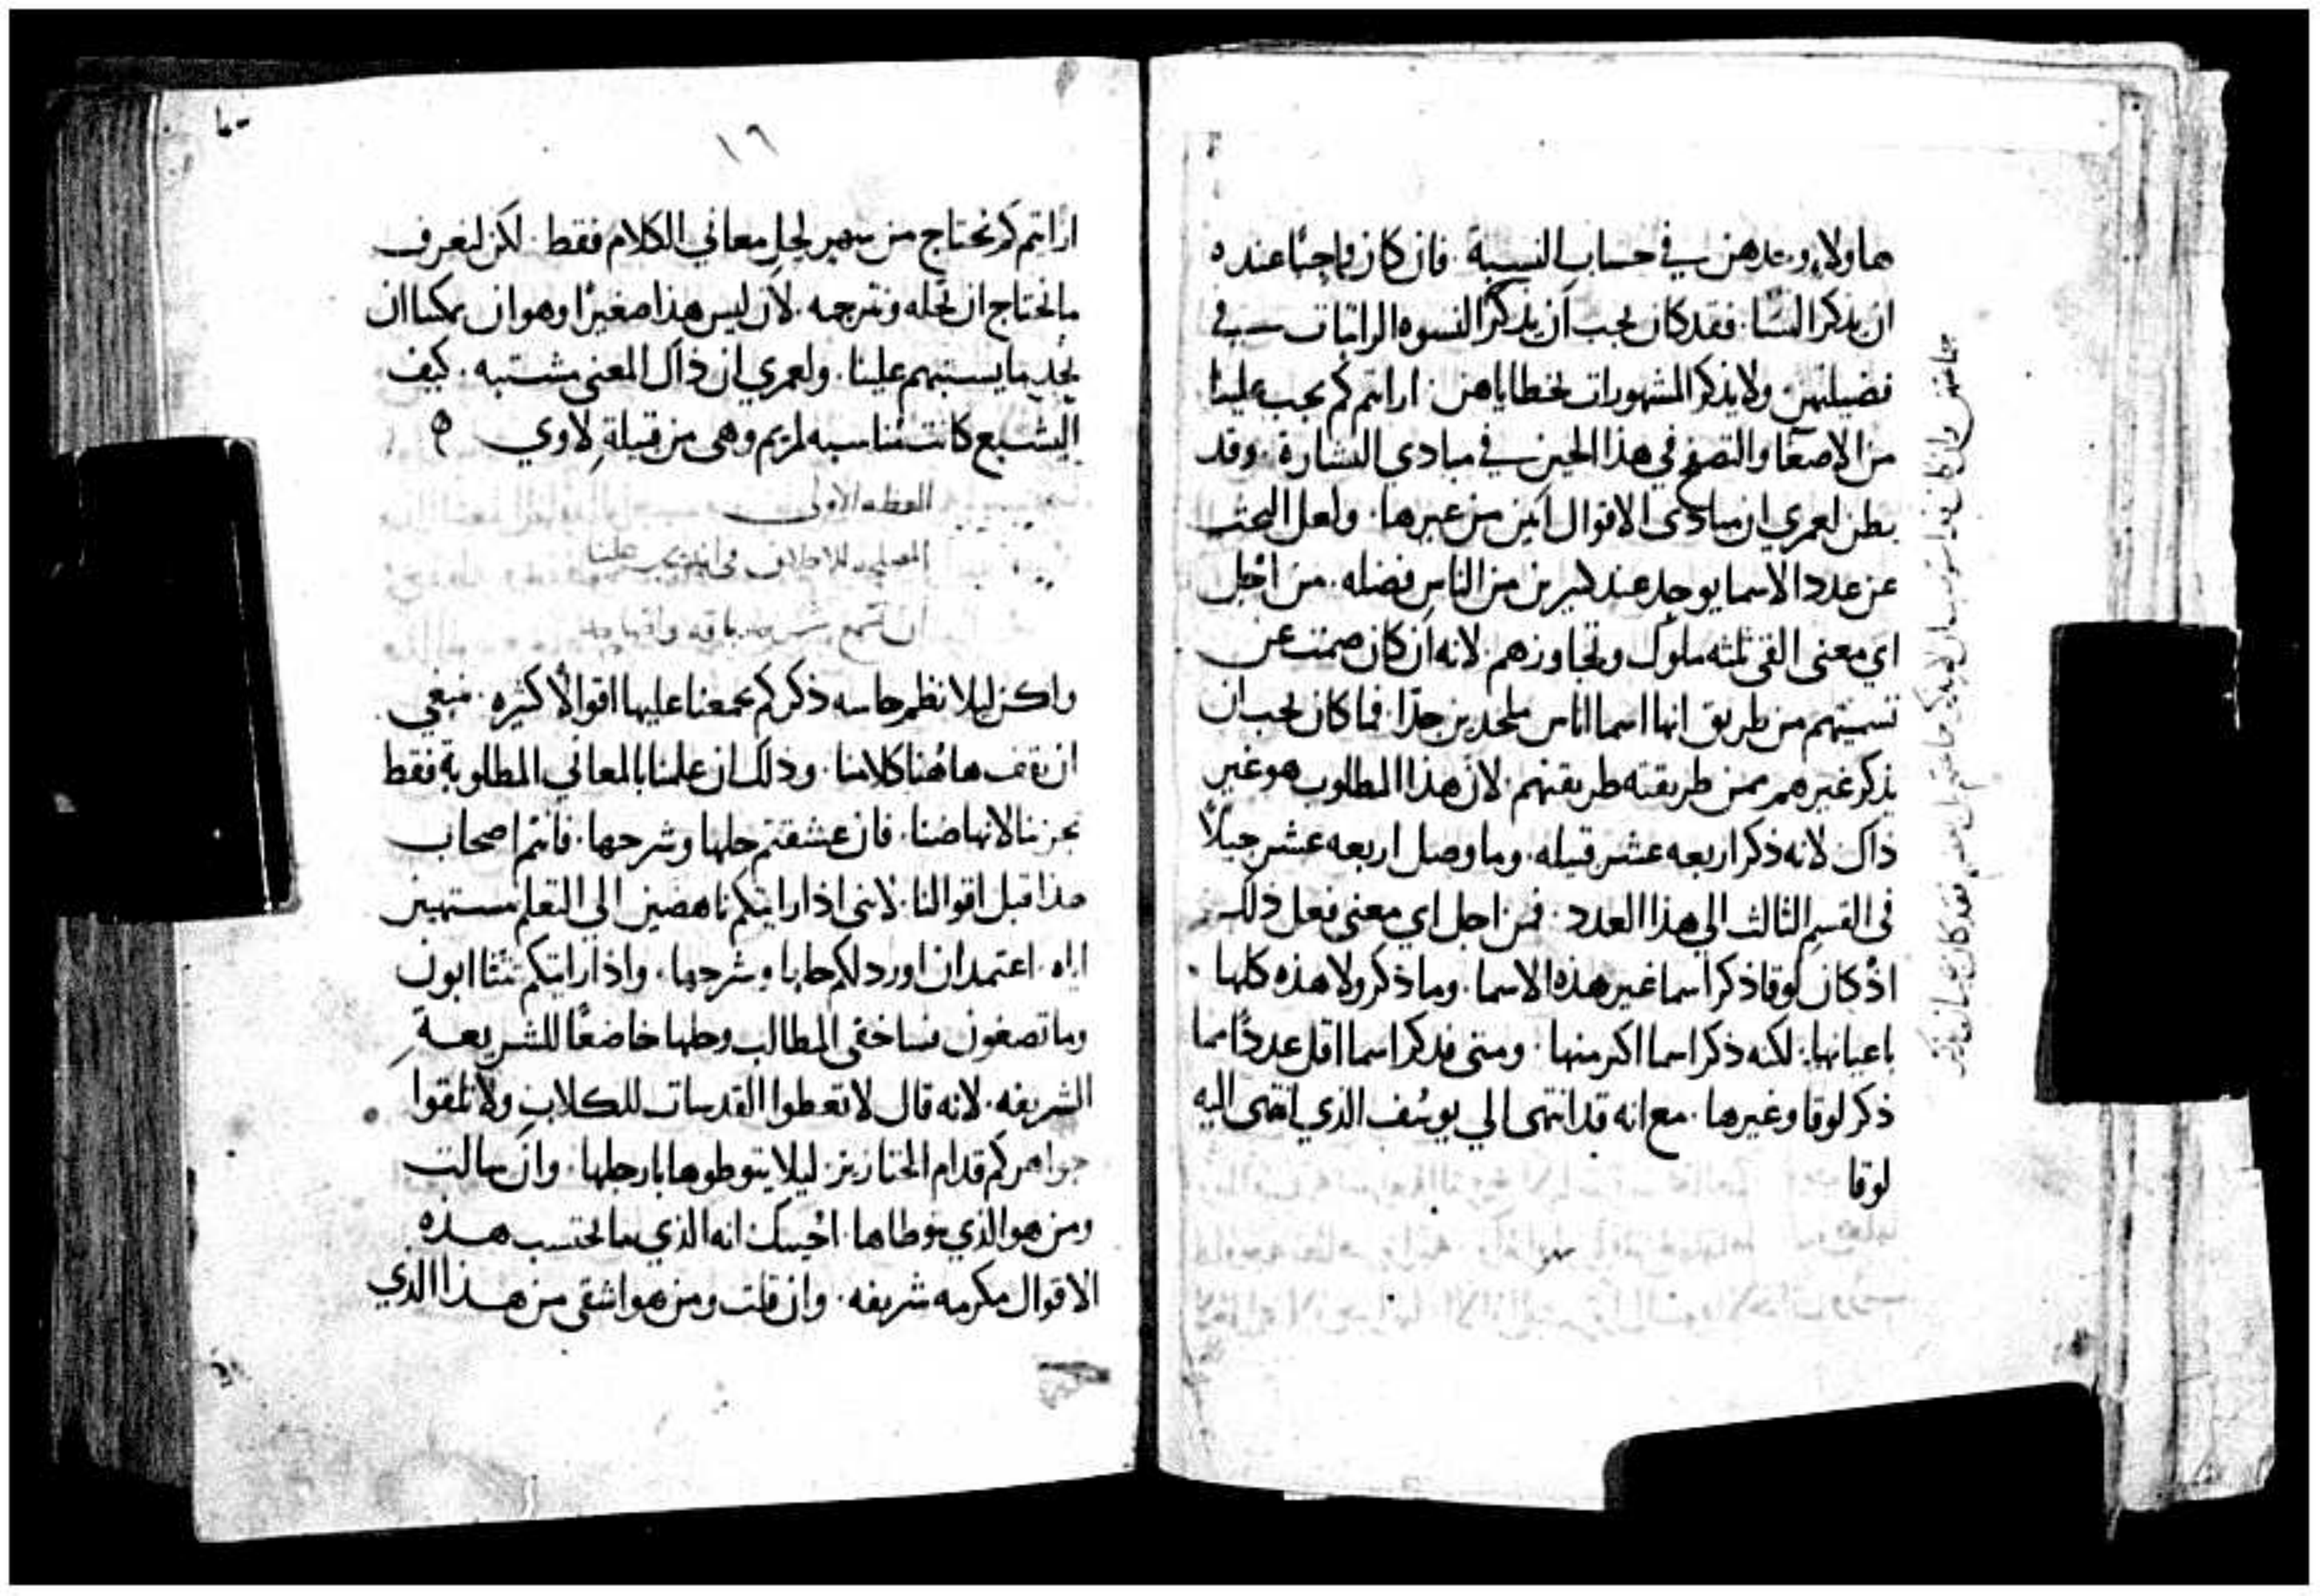 هاولاء وحدهن في حساب النسبة. فان كان واجبًا عنده
ان يذكر النسا. فقد كان يجب ان يذكر النسوه الراتبات في
فضيلتهن ولا يذكر المشهورات بخطاياهن. ارايتم كم يجب علينا
من الاصغا والتصفح في هذا الحين في مبادي البشارة. وقد
يظن لعمري ان مبادي الاقوال ابين من غيرها. ولعل البحث
عن عدد الاسما يوجد عند كثيرين من الناس فضله. من اجل
اي معنى الفى ثلثه ملوك وتجاوزهم. لانه ان كان صمت عن
تسميتهم من طريق انها اسما اناس ملحدين جدًا. فما كان يجب ان
يذكر غيرهم ممن طريقته طريقتهم. لان هذا المطلوب هو غير
ذاك لانه ذكر اربعه عشر قبيله. وما وصل اربعه عشر جيلًا
في القسم الثالث الي هذا العدد. فمن اجل اي معنى فعل ذلك
اذ كان لوقا ذكر اسما غير هذه الاسما. وما ذكر ولا هذه كلها
باعيانها. لكنه ذكر اسما اكثر منها. ومتى فذكر اسما اقل عددًا مما
ذكر لوقا وغيرها. مع انه قد انتهى الي يوسف الذي انتهى اليه
لوقا
١٦
ارايتم كم نحتاج من سهر لحل معاني الكلام فقط. لكن لنعرف
ما نحتاج ان نحله ونترجمه. لان ليس هذا صغيرًا وهو ان يمكننا ان
نجد ما يستبهم علينا. ولعمري ان ذاك المعنى مشتبه. كيف
اليشبع كانت مناسبه لمريم وهى من قبيلة لاوي ه
العظه الاولى
ولكن ليلا نظمر حاسه ذكركم بجمعنا عليها اقوالًا كثيره. فينبغي
ان نقف هاهنا كلامنا. وذلك ان علمنا بالمعاني المطلوبة فقط
يجزينا لانهاضنا. فان عشقتم حلها وشرحها. فانتم اصحاب
هذا قبل اقوالنا. لانى اذا رايتكم ناهضين الي التعلم مستهيين
اياه. اعتمد ان اورد لكم حلها وشرحها. واذا رايتكم تتثاابون
وما تصغون فساخفي المطالب وحلها خاضعًا للشريعة
الشريفه. لانه قال لا تعطوا القدسات للكلاب ولا تلقوا
جواهركم قدام الخنازير. ليلا يتوطوها بارجلها. وان سالت
ومن هو الذي يتوطاها. اجيبك انه الذي ما يحتسب هذه
الاقوال مكرمه شريفه. وان قلت ومن هو اشقى من هذا الذي